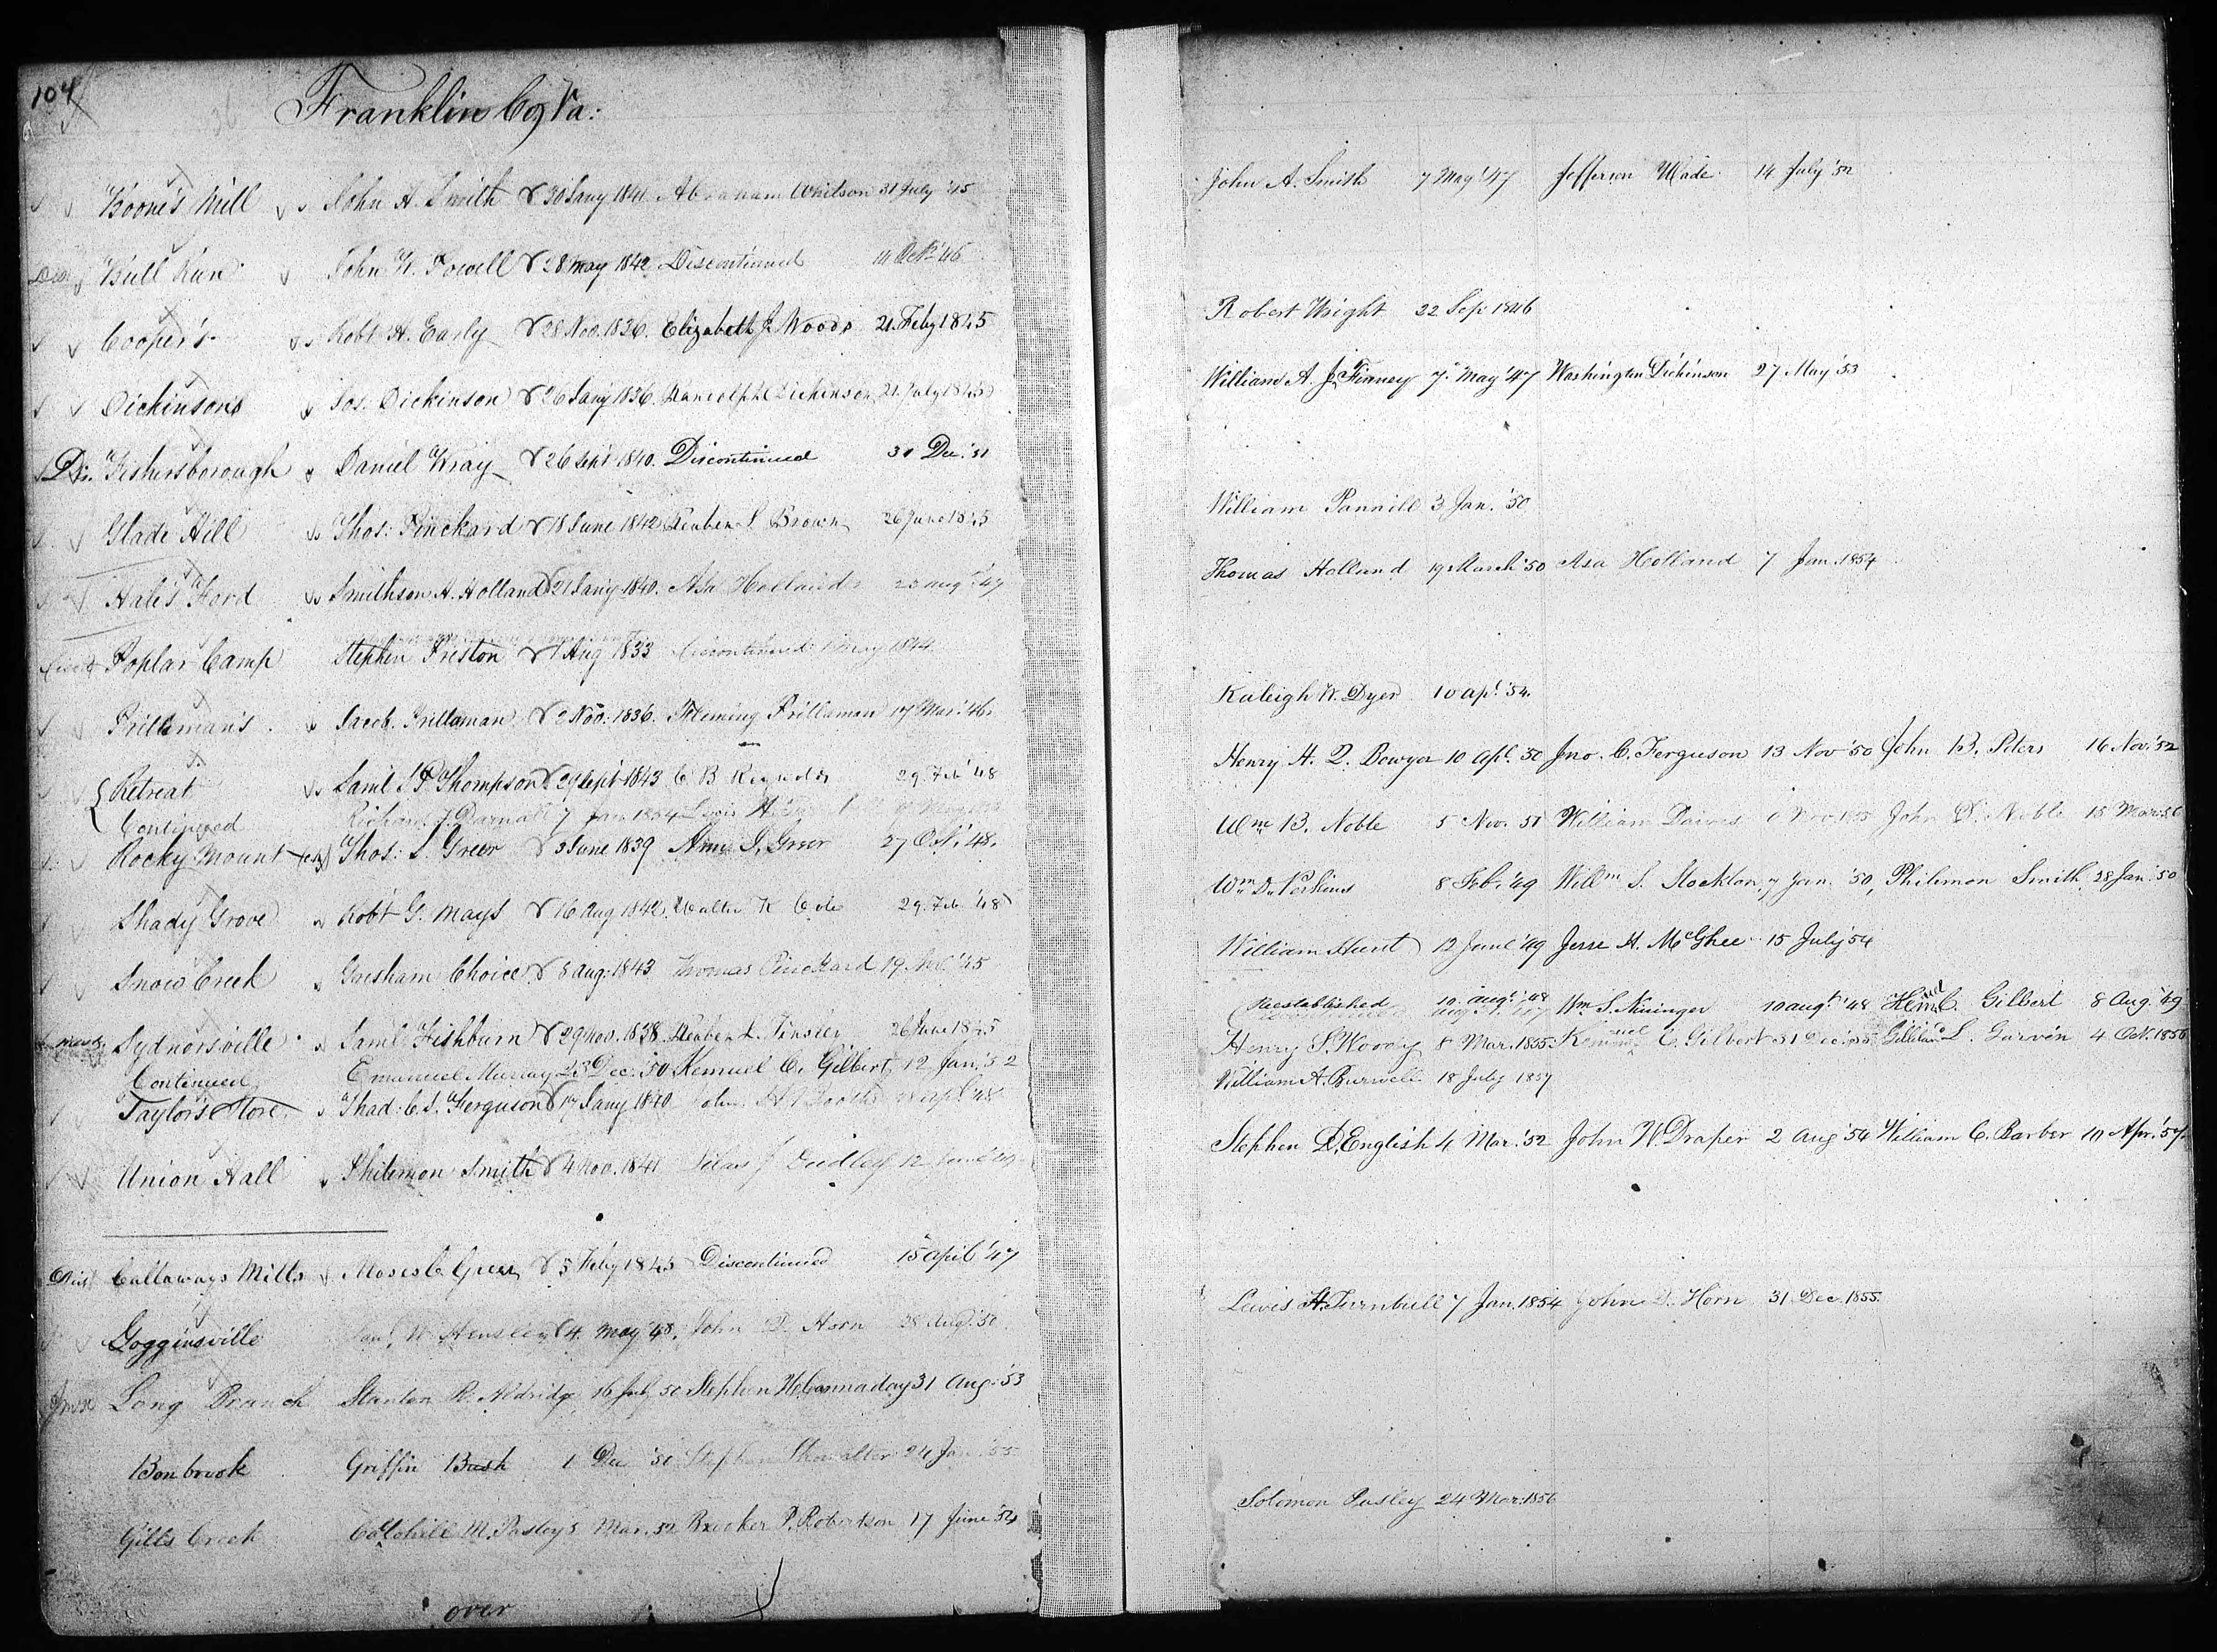 104
Franklin Co, Va:
Boone's Mill John A. Smith 30 Jany 1841. Abraham Whitson 31 July '45
Dis. Bull Run John W. Powell 28 May 1842 Discontinued Oct. '46
Cooper's Robt. H. Early 28 Nov. 1836. Elizabeth J. Woods 21. Feby 1845
Dickinson's Jos. Dickinson 26 Jany 1836. Randolph Dickinson 21. July 1845
Dis. Fishersborough Daniel Wray 26 Sept. 1840. Discontinued 31 Dec. '51
Glade Hill Thos: Pinckard 18 June 1842 Reuben S. Brown 26 June 1845
Hale's Ford Smithson H. Holland 21 Jany 1840. Asa Holland 23 Augt '47
Poplar Camp Stephen Preston 1 Aug 1833 Discontinued 1 May 1844.
Prillaman's Jacob. Prillaman 2 Nov. 1836. Fleming Prillaman 17 Mar. '46.
Retreat Saml. Thompson 29 Sept 1843 C B Reynolds 29. Feb '48
Continued Richard J. Darnall 7 Jan 1854 Lewis
Rocky Mount Thos: S. Greer 3 June 1839 G. Greer 27 Oct. '48.
Shady Grove Robt G. Mays 16 Aug 1842. Walter K Cole 29. Feb. '48
Snow Creek Gresham Choice 8 Aug: 1843 Thomas Pinckard 19 '45
Sydnorsville Saml Fishburn 29 Nov. 1838. Reuben L. Tinsley 26 June 1845
Continued Emanuel Murray 23 Dec. '50 Kemuel C. Gilbert 12 Jan. '52
Taylor's Store Thad: C. S. Ferguson 17 Jany 1840. John H. Booth 28 Apl. '48
Union Hall Philemon Smith 4 Nov. 1841. Silas J Dudley 12 '49
Dis. Callaways Mills Moses C Greer 5 Feby 1845 Discontinued 15 April '47
Gogginsville W Hensley 4. May '48. John D. Horn 28 Aug. '50
Long Branch Stanton R. Aldridge 16 July 50 Stephen H. Cannaday 31 Aug. '53
Bonbrook Griffin Bush 1 Dec '51 Stephen Showalter 24 Jan. '55
Gills Creek M. Pasley 5 Mar. 52 Booker P. Robertson 17 June '54
over
John A. Smith 7 May '47 Jefferson Wade 14 July '52
Robert Wright 22 Sep 1846
William A. J. Finney 7. May '47 Washington Dickinson 27 May '53
William Pannill 3 Jan. '50
Thomas Holland 19 March '50 Asa Holland 7 Jan. 1854
Raleigh W. Dyer 10 apl. '54.
Henry H. Q. Bowyer 10 Apl. 50 Jno. C. Ferguson 13 Nov '50 John B. Peters 16 Nov. '52
Wm B. Noble 5 Nov. 51 William Nov. John D. Noble 18 Mar. 56
Wm D. Perkins 8 Feb. '49 Willm S. Stockton, 7 Jan. '50, Philemon Smith, 28 Jan: 50
William Hunt 12 June '49 Jesse H. McGhee 15 July 54
Reestablished 10. Augt. '48 Wm. S. Nininger 10 Augt. '48 C. Gilbert 8 Aug. '49
Henry S. Woody 8 Mar. 1855 Kemuel C. Gilbert 31 Dec. L. Garven 4 Oct. 1856
William A. Burwell 18 July 1857
Stephen D. English 4 Mar. '52 John W. Draper 2 Aug '54 William C. Barber 10 Apr. '57
Lewis H. Turnbull 7 Jan. 1854 John D. Horn 31 Dec. 1855.
Solomon Pasley 24 Mar. 1856